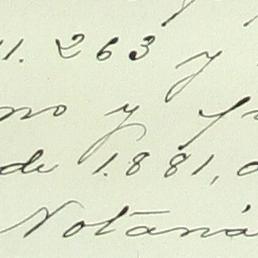 263 y
no y
de 1.881,
Notaria